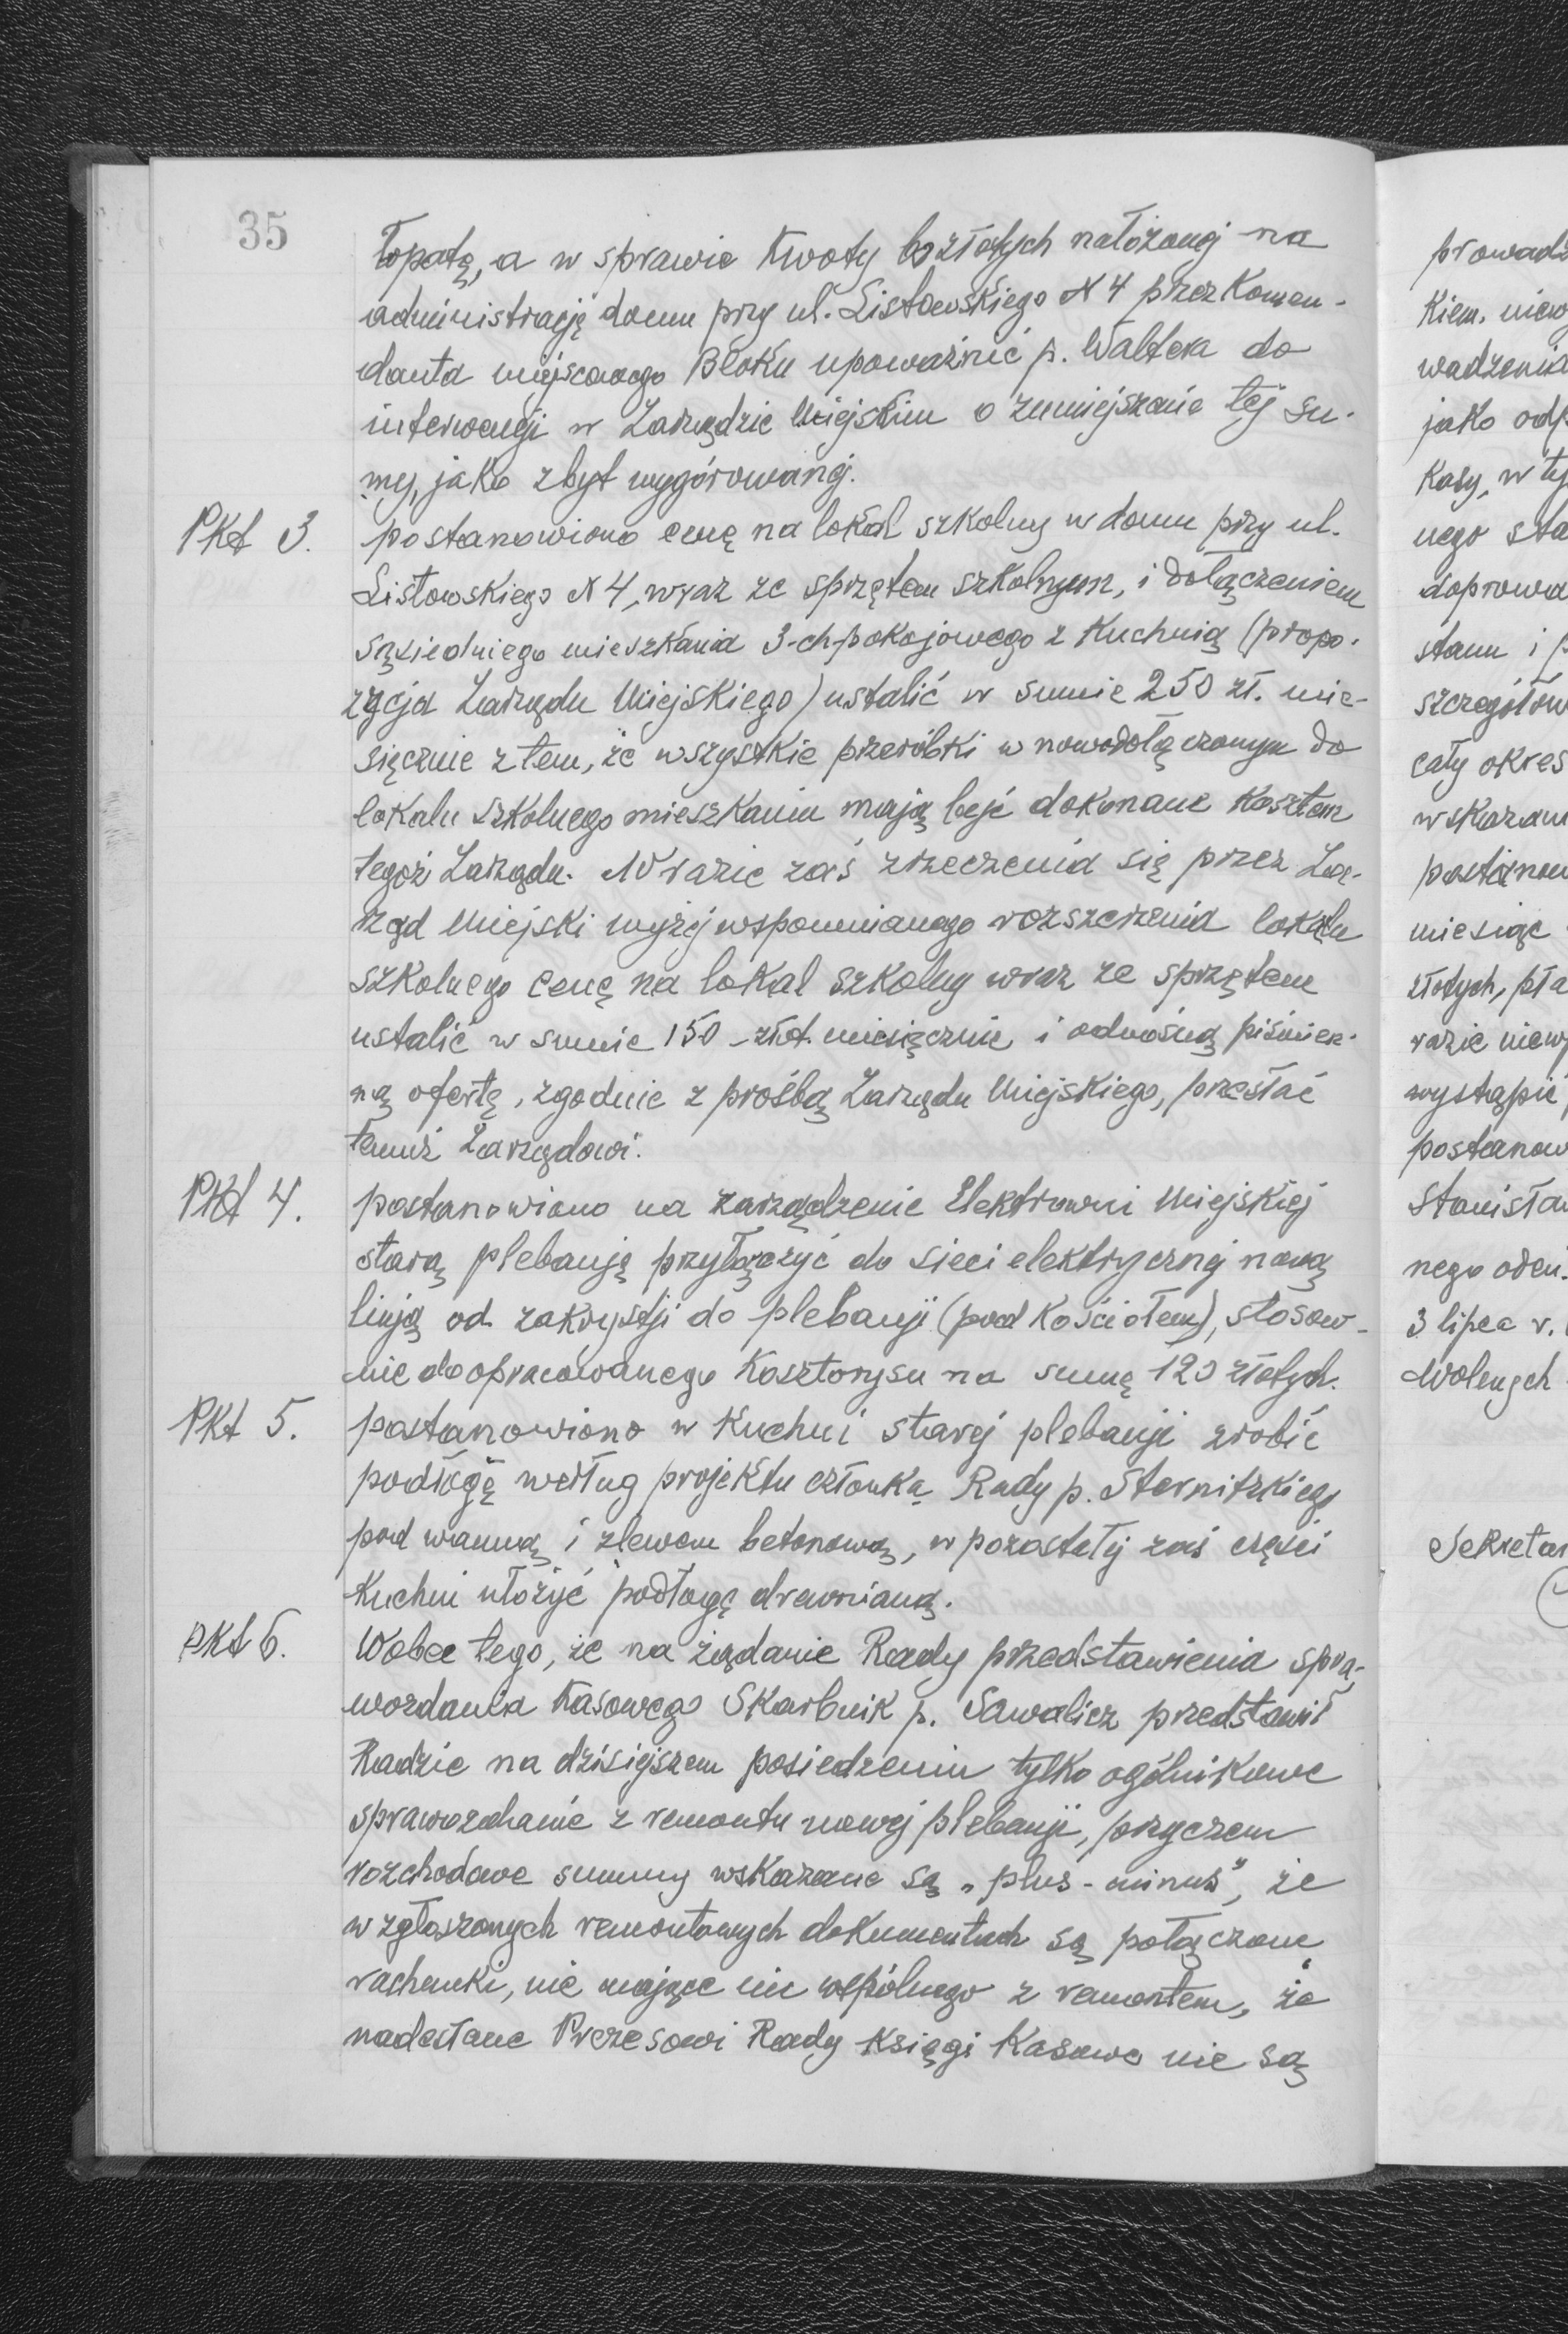 35
łopatę, a w sprawie kwoty złotych nałożonej na
administrację domu przy ul. Listowskiego N 4 przez Komen-
danta miejscowego Bloku upoważnić p. Waltera do
interwencji w Zarządzie Miejskim o zmniejszenie tej su-
my, jako zbyt wygórowanej.
Pkt 3. postanowiono cenę na lokal szkolny w domu przy ul.
Listowskiego N 4, wraz ze sprzętem szkolnym, i dołączeniem
sąsiedniego mieszkania 3-ch pokojowego z kuchnią (propo-
zycja Zarządu Miejskiego) ustalić w sumie 250 zł. mie-
sięcznie z tem, że wszystkie przeróbki w nowodołączonym do
lokalu szkolnego mieszkaniu mają być dokonane kosztem
tegoż Zarządu. W razie zaś zrzeczenia się przez Za-
rząd Miejski wyżej wspomnianego rozszerzenia lokalu
szkolnego cenę na lokal szkolny wraz ze sprzętem
ustalić w sumie 150 - złot. miesięcznie i odnośną piśmien-
ną ofertę, zgodnie z prośbą Zarządu Miejskiego, przesłać
temuż Zarządowi.
Pkt 4. postanowiono na zarządzenie Elektrowni Miejskiej
starą plebanję przyłączyć do sieci elektrycznej nową
linją od zakrystji do plebanji (pod Kościołem), stosow-
nie do opracowanego kosztorysu na sumę 120 złotych.
Pkt 5. postanowiono w kuchni starej plebanji zrobić
podłogę według projektu członka Rady p. Sternitzkiego
pod wanną i zlewem betonową, w pozostałej zaś części
kuchni ułożyć podłogę drewnianą.
Pkt 6. Wobec tego, że na żądanie Rady przedstawienia spra-
wozdania kasowego Skarbnik p. Sawalicz przedstawił
Radzie na dzisiejszem posiedzeniu tylko ogólnikowe
sprawozdanie z remontu nowej plebanji, przyczem
rozchodowe summy wskazane są „plus - minus", że
w zgłoszonych remontowych dokumentach są połączone
rachunki, nie mające nic wspólnego z remontem, że
nadesłane Prezesowi Rady księgi Kasowe nie są
prowadz
kiem, niew
wadzenia
jako odp
Kasy, w ty
nego sta
doprowa
stanu i p
szczegółow
cały okres
wskazan
postanow
miesiąc
złotych, pła
razie niew
wystąpić
postanow
Stanisław
nego oden.
3 lipca r.
Wolnych
Sekretar